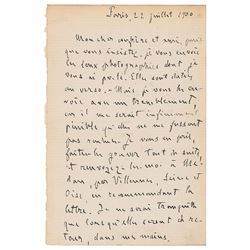 Paris, 22 juillet 1900
Mon cher confrère et ami, puis
que vous insistez, je vous envoie
les deux photographies dont je
vous ai parlé. Elles sont datées
au verso. - Mais je vous les en-
voie avec un tremblement,
car il me serait infiniment
pénible qu'elles ne me fussent
pas rendues. Je vous en prie,
faites les graver tout de suite
et renvoyez-les moi à Mé-
dan, par Villennes, Seine et
Oise, en recommandant la
lettre. Je ne serai tranquille
que lorsqu'elles seront de re-
tour, dans mes mains.